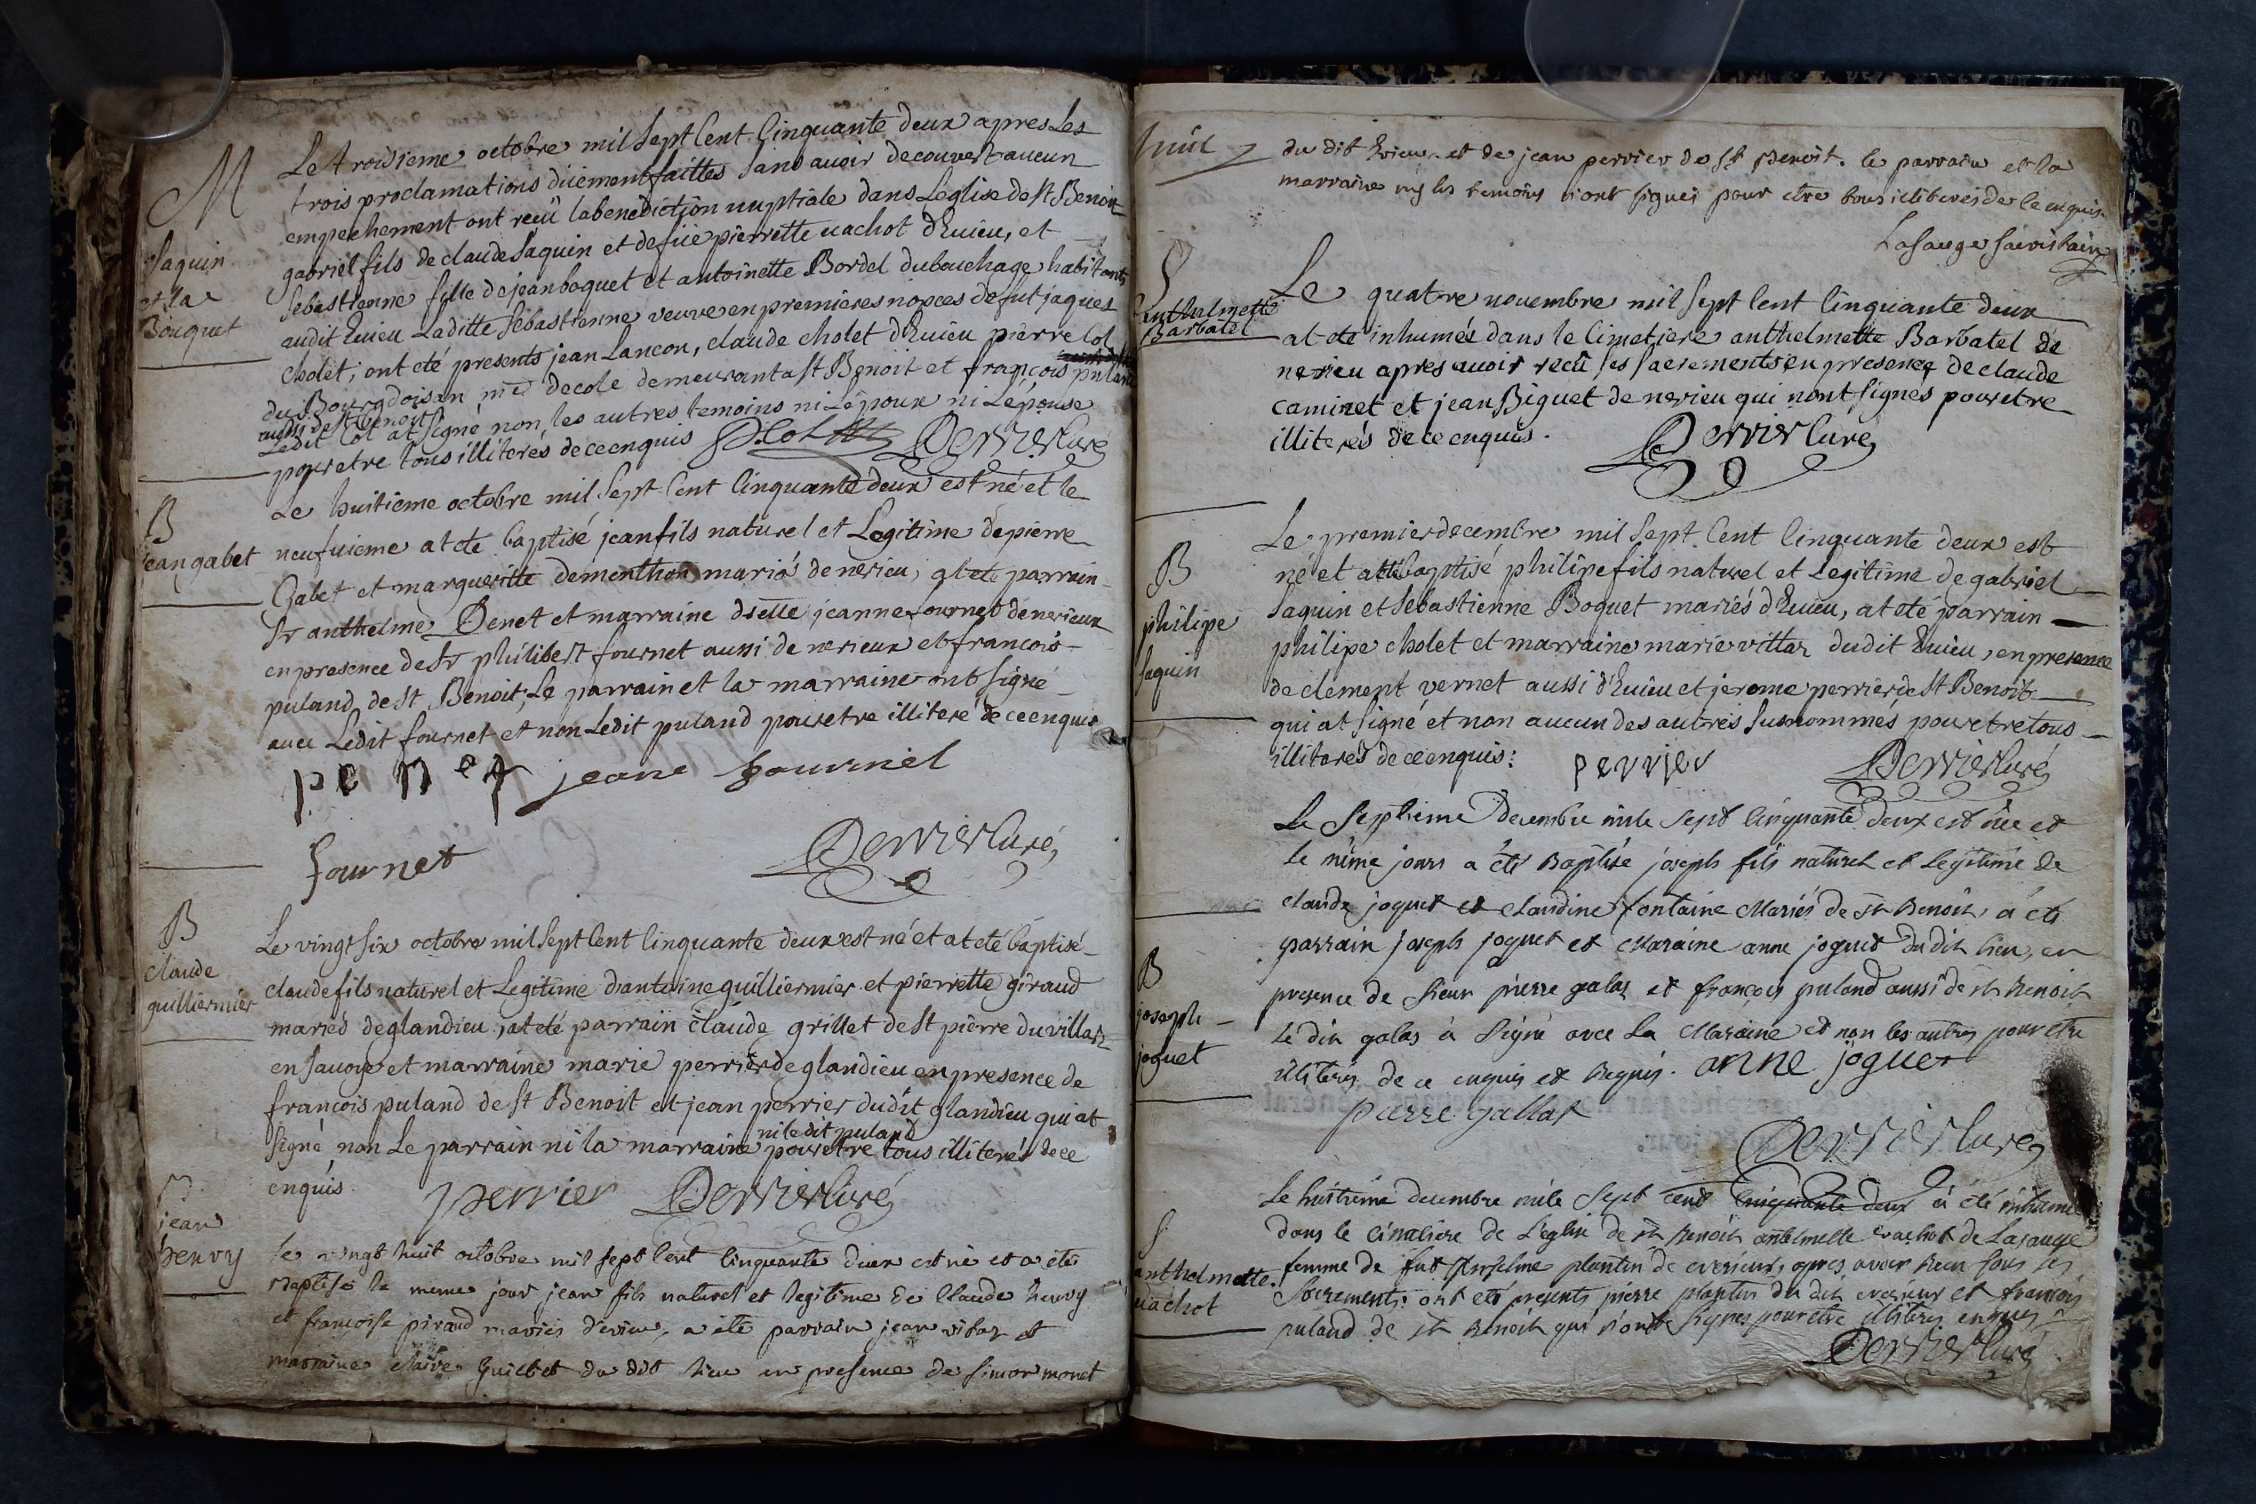 M
Saquin
et la
Bouquet
Le troisieme octobre mil sept Cent Cinquante deux apres Les
trois proclamations düement faittes sans avoir decouvert aucun
empechement ont reçû la benediction nuptiale dans Leglise de st Benoit
gabriel fils de claude Saquin et de füe pierrette vachot dEuieu, et
sebastienne fille de jean boquet et antoinette Bordel du bouchage habitants
audit Euieu Laditte sebastienne veuve en premieres nopces de fut jaques
cholet; ont eté presents jean Lancon, claude cholet dEuieu pierre Col
du Bourgdoisan me decole demeurant a st Benoit et françois puland
aussi de st Benoit
Ledit Col at signé non les autres temoins ni Lépoux ni Lépouse
pour etre tous illiterés de ce enquis P. Col Perrier Curé
B
jean gabet
Le huitieme octobre mil sept Cent Cinquante deux est né et le
neufvieme at eté baptisé jean fils naturel et Legitime de pierre
Gabet et margueritte dementhon mariés de nerieu, at eté parrain
Sr anthelme Penet et marraine dselle jeanne fournet de nerieux
en presence de Sr philibert fournet aussi de nerieux et francois
puland de st Benoit, Le parrain et la marraine ont signé
avec Ledit fournet et non Ledit puland pour etre illiteré de ce enquis
penet jeane fournel
fournet Perrier Curé
B
claude
guilliermier
Le vingt six octobre mil sept Cent Cinquante deux est né et at eté baptisé
claude fils naturel et Legitime dantoine guilliermier et pierrette giraud
mariés de glandieu, at eté parrain claude grillet de st pierre du villar
en savoye et marraine marie perrier de glandieu en presence de
françois puland de st Benoit et jean perrier dudit glandieu qui at
signé non Le parrain ni la marraine ni ledit puland pour etre tous illiterés de ce
enquis perrier Perrier Curé
jean
henvy
le vingt huit octobre mil sept Cent Cinquante deux est né et a été
Baptisé le meme jour jean fils naturel et legitime de Claude henvy
et françoise piraud mariés d'evieu, a été parrain jean vitoz et
marraine claire Guilbet du dit lieu en presence de simon monet
du dit Evieu et de jean perrier de St Benoit. le parrain et la
marraine ny les temoins n'ont signés pour être tous illiterés de ce enquis
S
Anthelmette
Barbatel
Le quatre novembre mil sept Cent Cinquante deux
at eté inhumée dans le Cimetiere anthelmette Barbatel de
nerieu apres avoir recû ses sacrements en presence de claude
caminet et jean Biguet de nerieu qui n'ont signés pour etre
illiterés de ce enquis. Perrier Curé
B
philipe
saquin
Le premier decembre mil sept Cent Cinquante deux est
né et at eté baptisé philipe fils naturel et Legitime de gabriel
saquin et sebastienne Boquet mariés dEuieu, at eté parrain
philipe cholet et marraine marie vittoz dudit Euieu, en presence
de clement vernet aussi d'Euieu et jerome perrier de st Benoit
qui at signé et non aucun des autres susnommés pour etre tous
illiterés de ce enquis: perrier Perrier Curé
B
joseph
joguet
Le septieme decembre mile sept Cinquante deux est née et
le même jours a été Baptisé joseph fils naturel et legitime de
claude joguet et claudine fontaine Mariés de st Benoit, a été
parrain joseph joguet et Maraine anne joguet du dit lieu, en
presence de sieur pierre galas et françois puland aussi de st Benoit
le dit galas à signé avec la Maraine et non les autres pour être
iliterés de ce enquis et Requis. anne joguet
pierre gallas
Perrier Curé
S
anthelmette
vachot
Le huitieme decembre mile sept cent Cinquante deux à été inhumé
dans le cimetiere de L'eglise de st Benoit antelmette vachot de Lasauge
femme de fut Anselme plantin de everieux, apres avoir Recu tous ses
Sacrements. ont été presents pierre plantin du dit everieux et françois
puland de st Benoit qui n'ont signés pour etre illiterés enquis
Perrier Curé